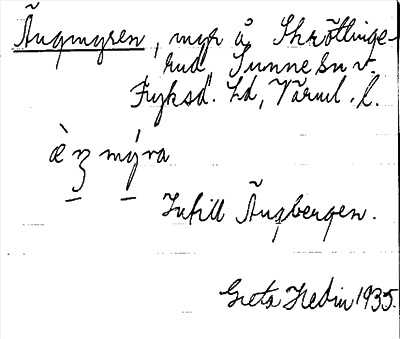 Ängmyren, myr å Skröttinge-
rud, Sunne sn v.
Fryksd. hd, Värml. l.
æ̀ŋmýra
Intill Ängbergen.
Greta Hedin 1935.